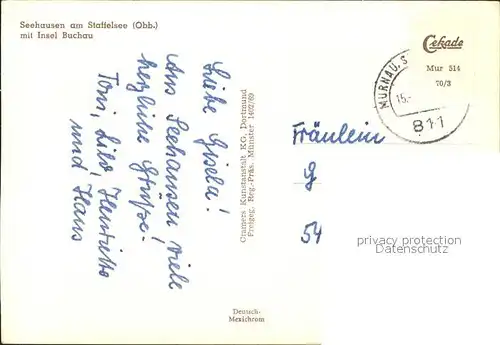 Seehausen am Staffelsee (Obb.)
mit Insel Buchau
Cekade
Mur 514
70/3
MURNAU, S
15.-
811
Liebe Gisela!
Aus Seehausen viele
herzliche Grüße.
Toni, Lilo, Henriette
und Hans
Cramers Kunstanstalt KG, Dortmund
Freigeg. Reg.-Präs. Münster 1402/69
Fräulein
G
54
privacy protection
Datenschutz
Deutsch-
Mexichrom